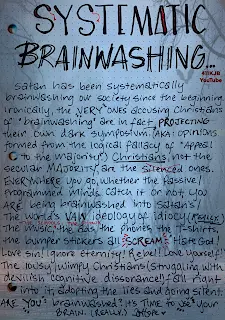 SYSTEMATIC
BRAINWASHING...
#1IKJB
YouTube
satan has been systematically
brainwashing our society since the beginning.
Ironically, the VERY ones accusing Christians
of "brainwashing" are in fact PROJECTING
their own dark symposium. (AKA: opinions
formed from the logical fallacy of "Appeal
to the majority") Christians, not the
secular MAJORITY, are the silenced ones.
EVERYWHERE you go, whether the passive
programmed minds catch it or not, you
ARE being brainwashed into satan's/
The world's VAIN ideology of idiocy.
The music, the ads, the phones, the t-shirts,
the bumper stickers all SCREAM "Hate God!
Love sin! Ignore eternity! Rebel! Love yourself!"
The lousy, wimpy Christians (struggling with
devilish cognitive dissonance) fall right
into it; adopting the lies and being silent.
ARE YOU brainwashed? It's TIME to USE your
BRAIN. (REALLY.)